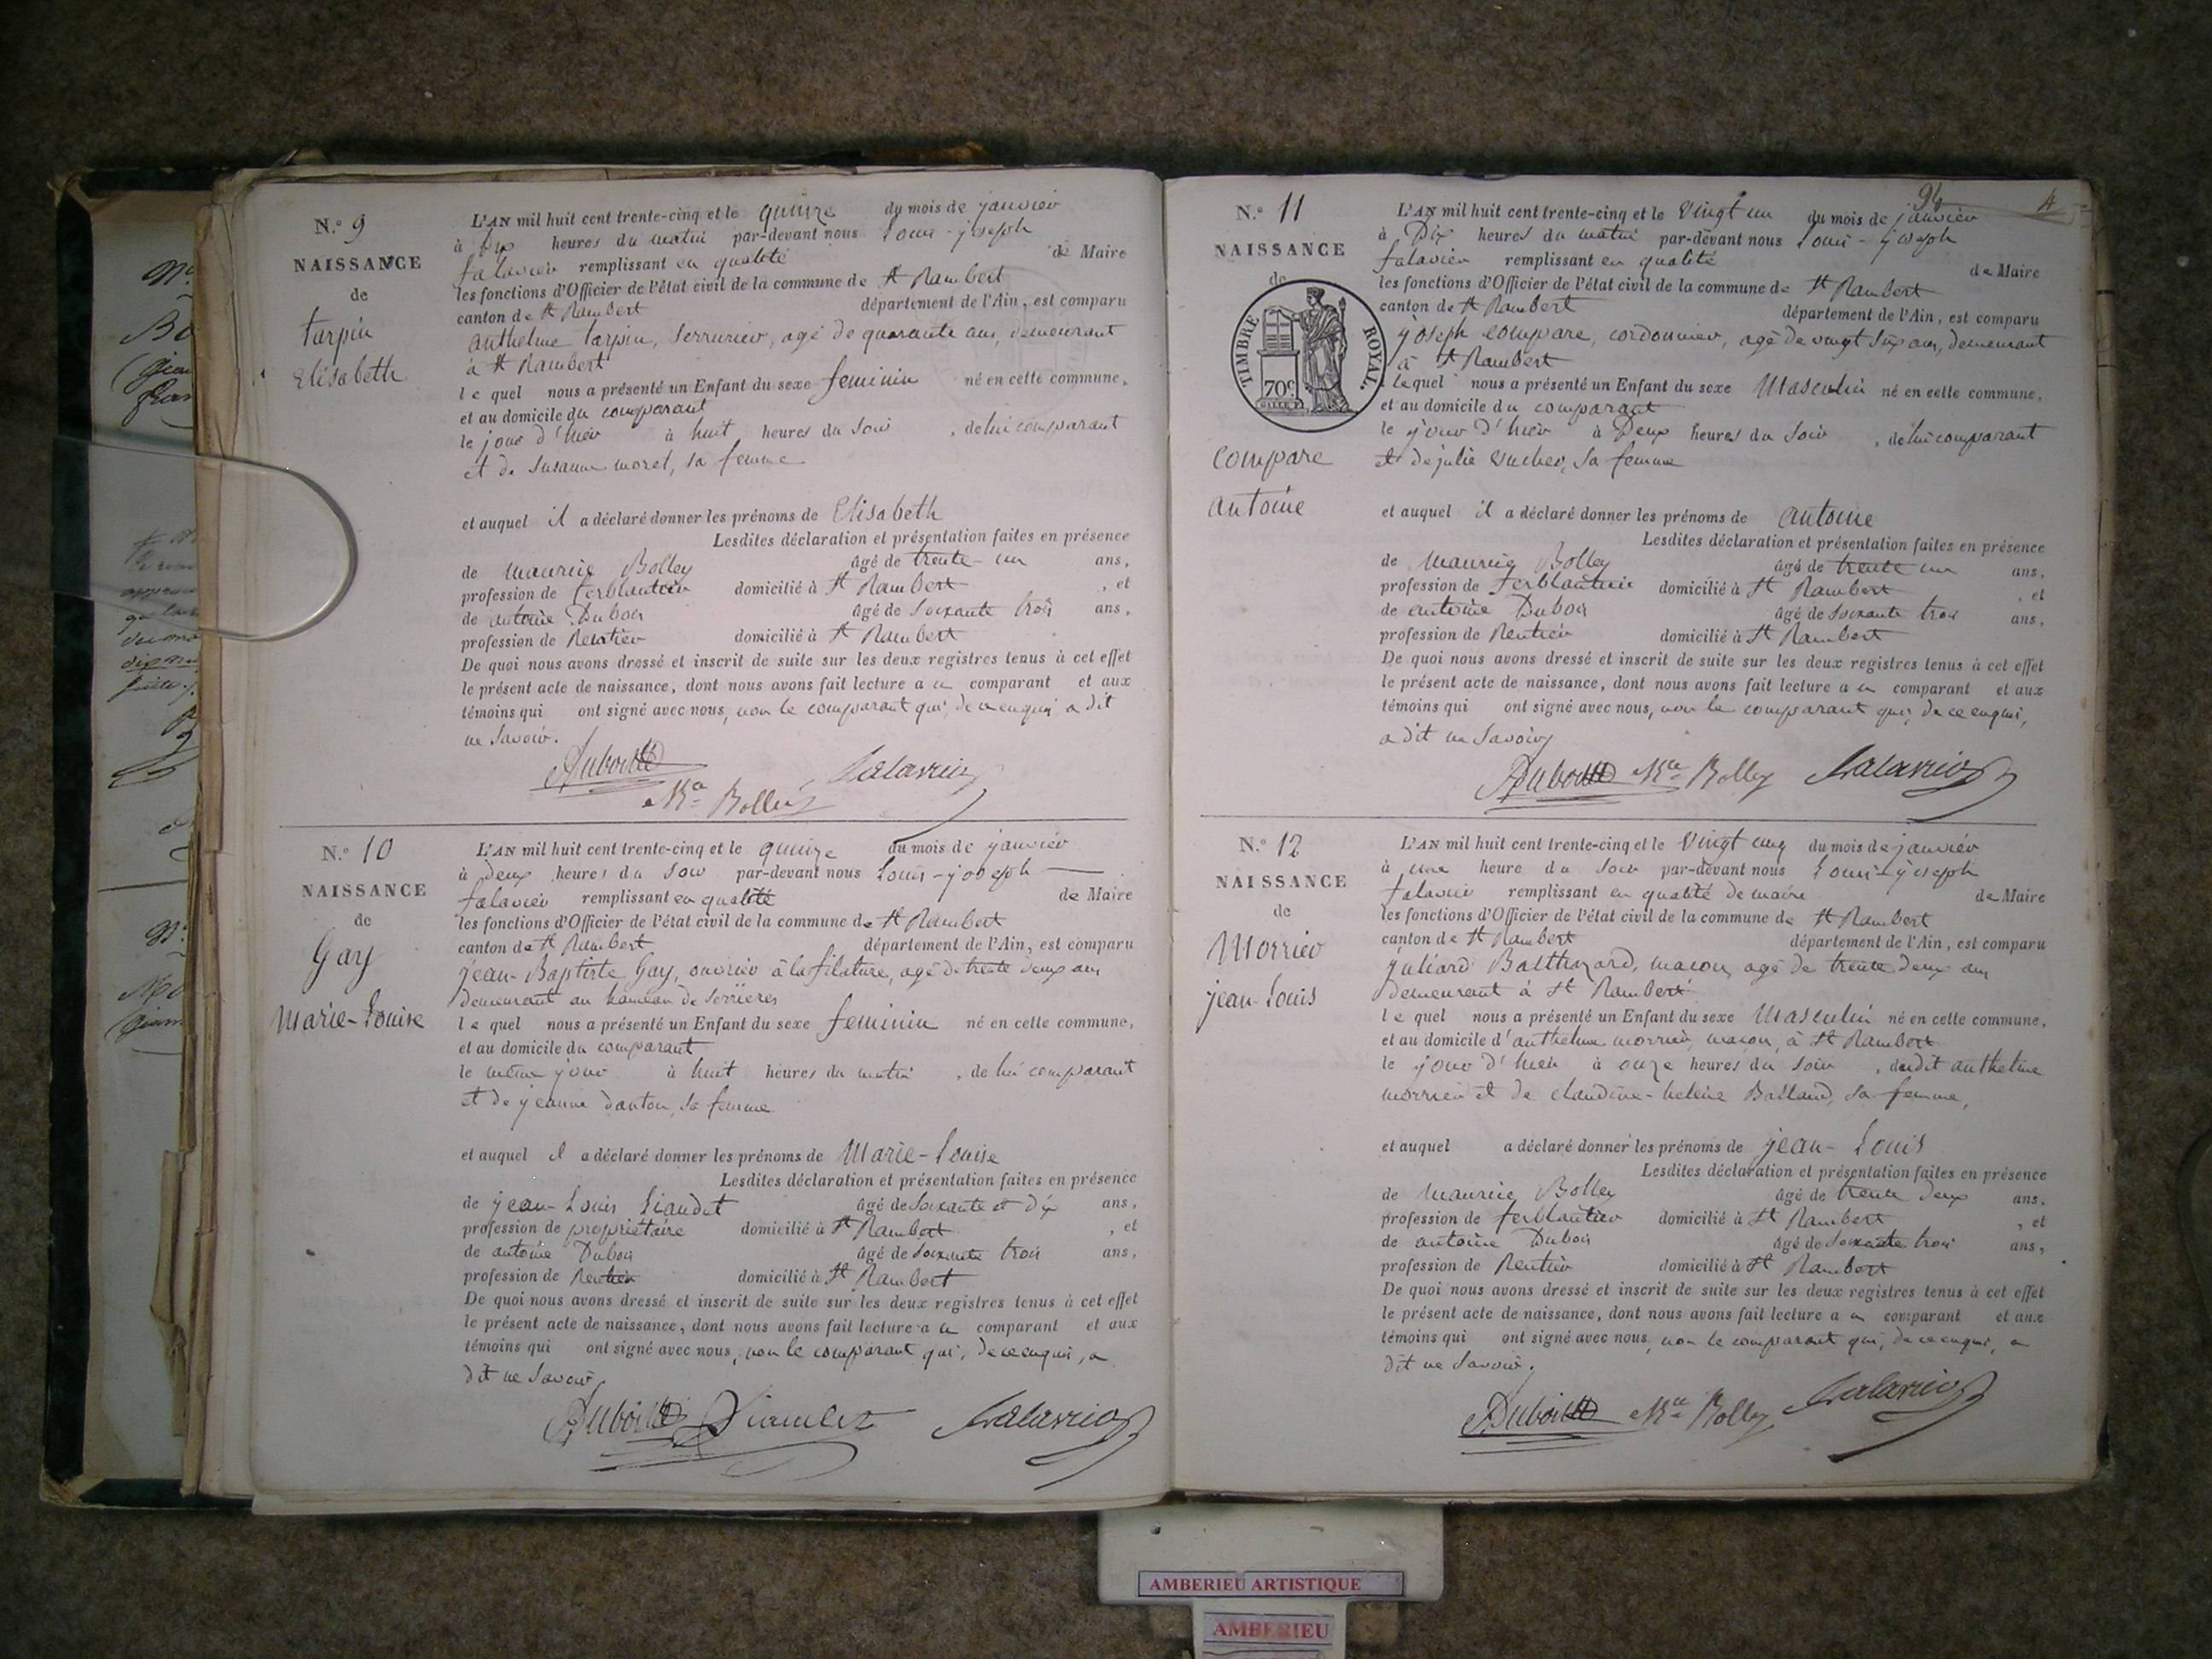 N.° 9
NAISSANCE
de
tarpin
Elisabeth
L'AN mil huit cent trente-cinq et le quinze du mois de janvier
à dix heures du matin par-devant nous Louis-joseph
falavier remplissant en qualité de Maire
les fonctions d'Officier de l'état civil de la commune de St Rambert
canton de St Rambert département de l'Ain, est comparu
anthelme tarpin, serrurier, agé de quarante ans, demeurant
à St Rambert
le quel nous a présenté un Enfant du sexe feminin né en cette commune,
et au domicile du comparant
le jour d'hier à huit heures du soir, de lui comparant
et de susanne morel, sa femme
et auquel il a déclaré donner les prénoms de Elisabeth
Lesdites déclaration et présentation faites en présence
de maurice Bolley âgé de trente-un ans,
profession de ferblantier domicilié à St Rambert, et
de antoine Dubois âgé de soixante trois ans,
profession de Rentier domicilié à St Rambert
De quoi nous avons dressé et inscrit de suite sur les deux registres tenus à cet effet
le présent acte de naissance, dont nous avons fait lecture a u comparant et aux
témoins qui ont signé avec nous, non le comparant qui, de ce enquis, a dit
ne savoir.
Dubois falavier
Mce Bolley
N.° 10
NAISSANCE
de
Gay
Marie-Louise
L'AN mil huit cent trente-cinq et le quinze du mois de janvier
à deux heures du soir par-devant nous Louis-joseph
falavier remplissant en qualité de Maire
les fonctions d'Officier de l'état civil de la commune de St Rambert
canton de St Rambert département de l'Ain, est comparu
jean-Baptiste Gay, ouvrier à la filature, agé de trente deux ans
demeurant au hameau de Serrieres
le quel nous a présenté un Enfant du sexe feminin né en cette commune,
et au domicile du comparant
le même jour à huit heures du matin, de lui comparant
et de jeanne danton, sa femme
et auquel il a déclaré donner les prénoms de Marie-Louise
Lesdites déclaration et présentation faites en présence
de jean-Louis Liaudet âgé de soixante et dix ans,
profession de propriétaire domicilié à St Rambert, et
de antoine Dubois âgé de soixante trois ans,
profession de Rentier domicilié à St Rambert
De quoi nous avons dressé et inscrit de suite sur les deux registres tenus à cet effet
le présent acte de naissance, dont nous avons fait lecture a u comparant et aux
témoins qui ont signé avec nous, non le comparant qui, de ce enquis, a
dit ne savoir
Dubois falavier
94 4
N.° 11
NAISSANCE
de
TIMBRE ROYAL.
70c.
compare
antoine
L'AN mil huit cent trente-cinq et le vingt un du mois de janvier
à Dix heures du matin par-devant nous Louis-joseph
falavier remplissant en qualité de Maire
les fonctions d'Officier de l'état civil de la commune de St Rambert
canton de St Rambert département de l'Ain, est comparu
joseph compare, cordonnier, agé de vingt six ans, demeurant
à St Rambert
lequel nous a présenté un Enfant du sexe Masculin né en cette commune,
et au domicile du comparant
le jour d'hier à Deux heures du soir, de lui comparant
et de julie vucher, sa femme
et auquel il a déclaré donner les prénoms de antoine
Lesdites déclaration et présentation faites en présence
de maurice Bolley âgé de trente un ans,
profession de ferblantier domicilié à St Rambert, et
de antoine Dubois âgé de soixante trois ans,
profession de Rentier domicilié à St Rambert
De quoi nous avons dressé et inscrit de suite sur les deux registres tenus à cet effet
le présent acte de naissance, dont nous avons fait lecture a u comparant et aux
témoins qui ont signé avec nous, non le comparant qui, de ce enquis,
a dit ne savoir
Dubois Mce Bolley falavier
N.° 12
NAISSANCE
de
Morrier
jean-Louis
L'AN mil huit cent trente-cinq et le vingt cinq du mois de janvier
à une heure du soir par-devant nous Louis-joseph
falavier remplissant en qualité de maire de Maire
les fonctions d'Officier de l'état civil de la commune de St Rambert
canton de St Rambert département de l'Ain, est comparu
juliard Balthazard, macon, agé de trente deux ans
demeurant à St Rambert
le quel nous a présenté un Enfant du sexe Masculin né en cette commune,
et au domicile d'anthelme morrier, macon, à St Rambert
le jour d'hier à onze heures du soir, dudit anthelme
morrier et de claudine-helène Balland, sa femme,
et auquel a déclaré donner les prénoms de jean-Louis
Lesdites déclaration et présentation faites en présence
de maurice Bolley âgé de trente deux ans,
profession de ferblantier domicilié à St Rambert, et
de antoine Dubois âgé de soixante trois ans,
profession de Rentier domicilié à St Rambert
De quoi nous avons dressé et inscrit de suite sur les deux registres tenus à cet effet
le présent acte de naissance, dont nous avons fait lecture a u comparant et aux
témoins qui ont signé avec nous, non le comparant qui, de ce enquis, a
dit ne savoir.
Dubois Mce Bolley falavier
AMBERIEU ARTISTIQUE
AMBERIEU